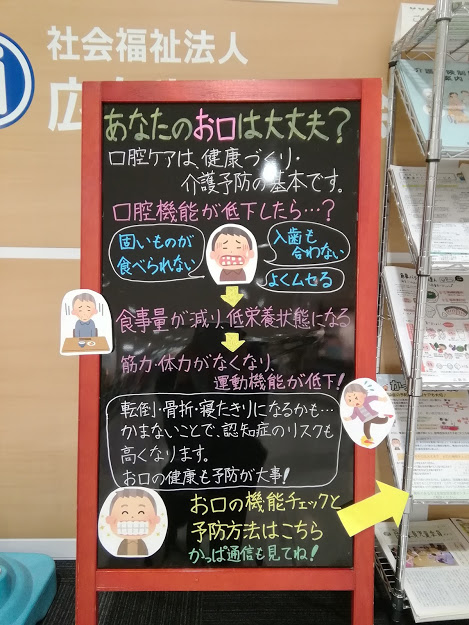 社会福祉法人
広
あなたのお口は大丈夫？
口腔ケアは、健康づくり・
介護予防の基本です。
口腔機能が低下したら…？
固いものが
食べられない
入歯も
合わない
よくムセる
食事量が減り、低栄養状態になる
筋力・体力がなくなり、
運動機能が低下！
転倒・骨折・寝たきりになるかも…
かまないことで、認知症のリスクも
高くなります。
お口の健康も予防が大事！
お口の機能チェックと
予防方法はこちら
かっぱ通信も見てね！